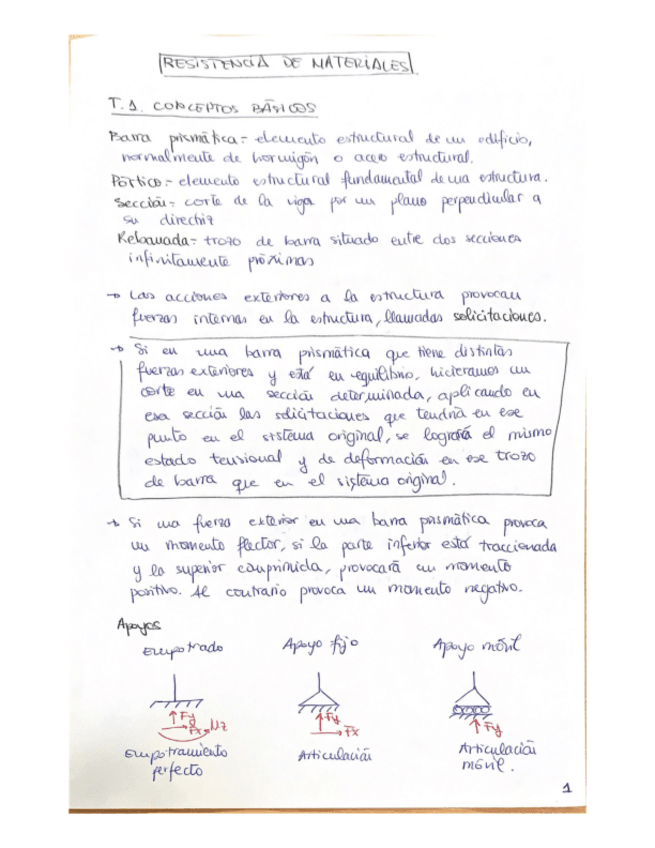 RESISTENCIA DE MATERIALES
T.1. CONCEPTOS BÁSICOS
Barra prismática:- elemento estructural de un edificio,
normalmente de hormigón o acero estructural.
Pórtico:- elemento estructural fundamental de una estructura.
Sección:- corte de la viga por un plano perpendicular a
su directriz
Rebanada:- trozo de barra situado entre dos secciones
infinitamente próximas
→ Las acciones exteriores a la estructura provocan
fuerzas internas en la estructura, llamadas solicitaciones.
→ Si en una barra prismática que tiene distintas
fuerzas exteriores y está en equilibrio, hicieramos un
corte en una sección determinada, aplicando en
esa sección las solicitaciones que tendría en ese
punto en el sistema original, se logrará el mismo
estado tensional y de deformación en ese trozo
de barra que en el sistema original.
→ Si una fuerza exterior en una barra prismática provoca
un momento flector, si la parte inferior está traccionada
y la superior comprimida, provocará un momento
positivo. Al contrario provoca un momento negativo.
Apoyos
Empotrado Apoyo fijo Apoyo móvil
Fy Fx Mz Fy Fx Fy
Empotramiento perfecto
Articulación
Articulación móvil.
1